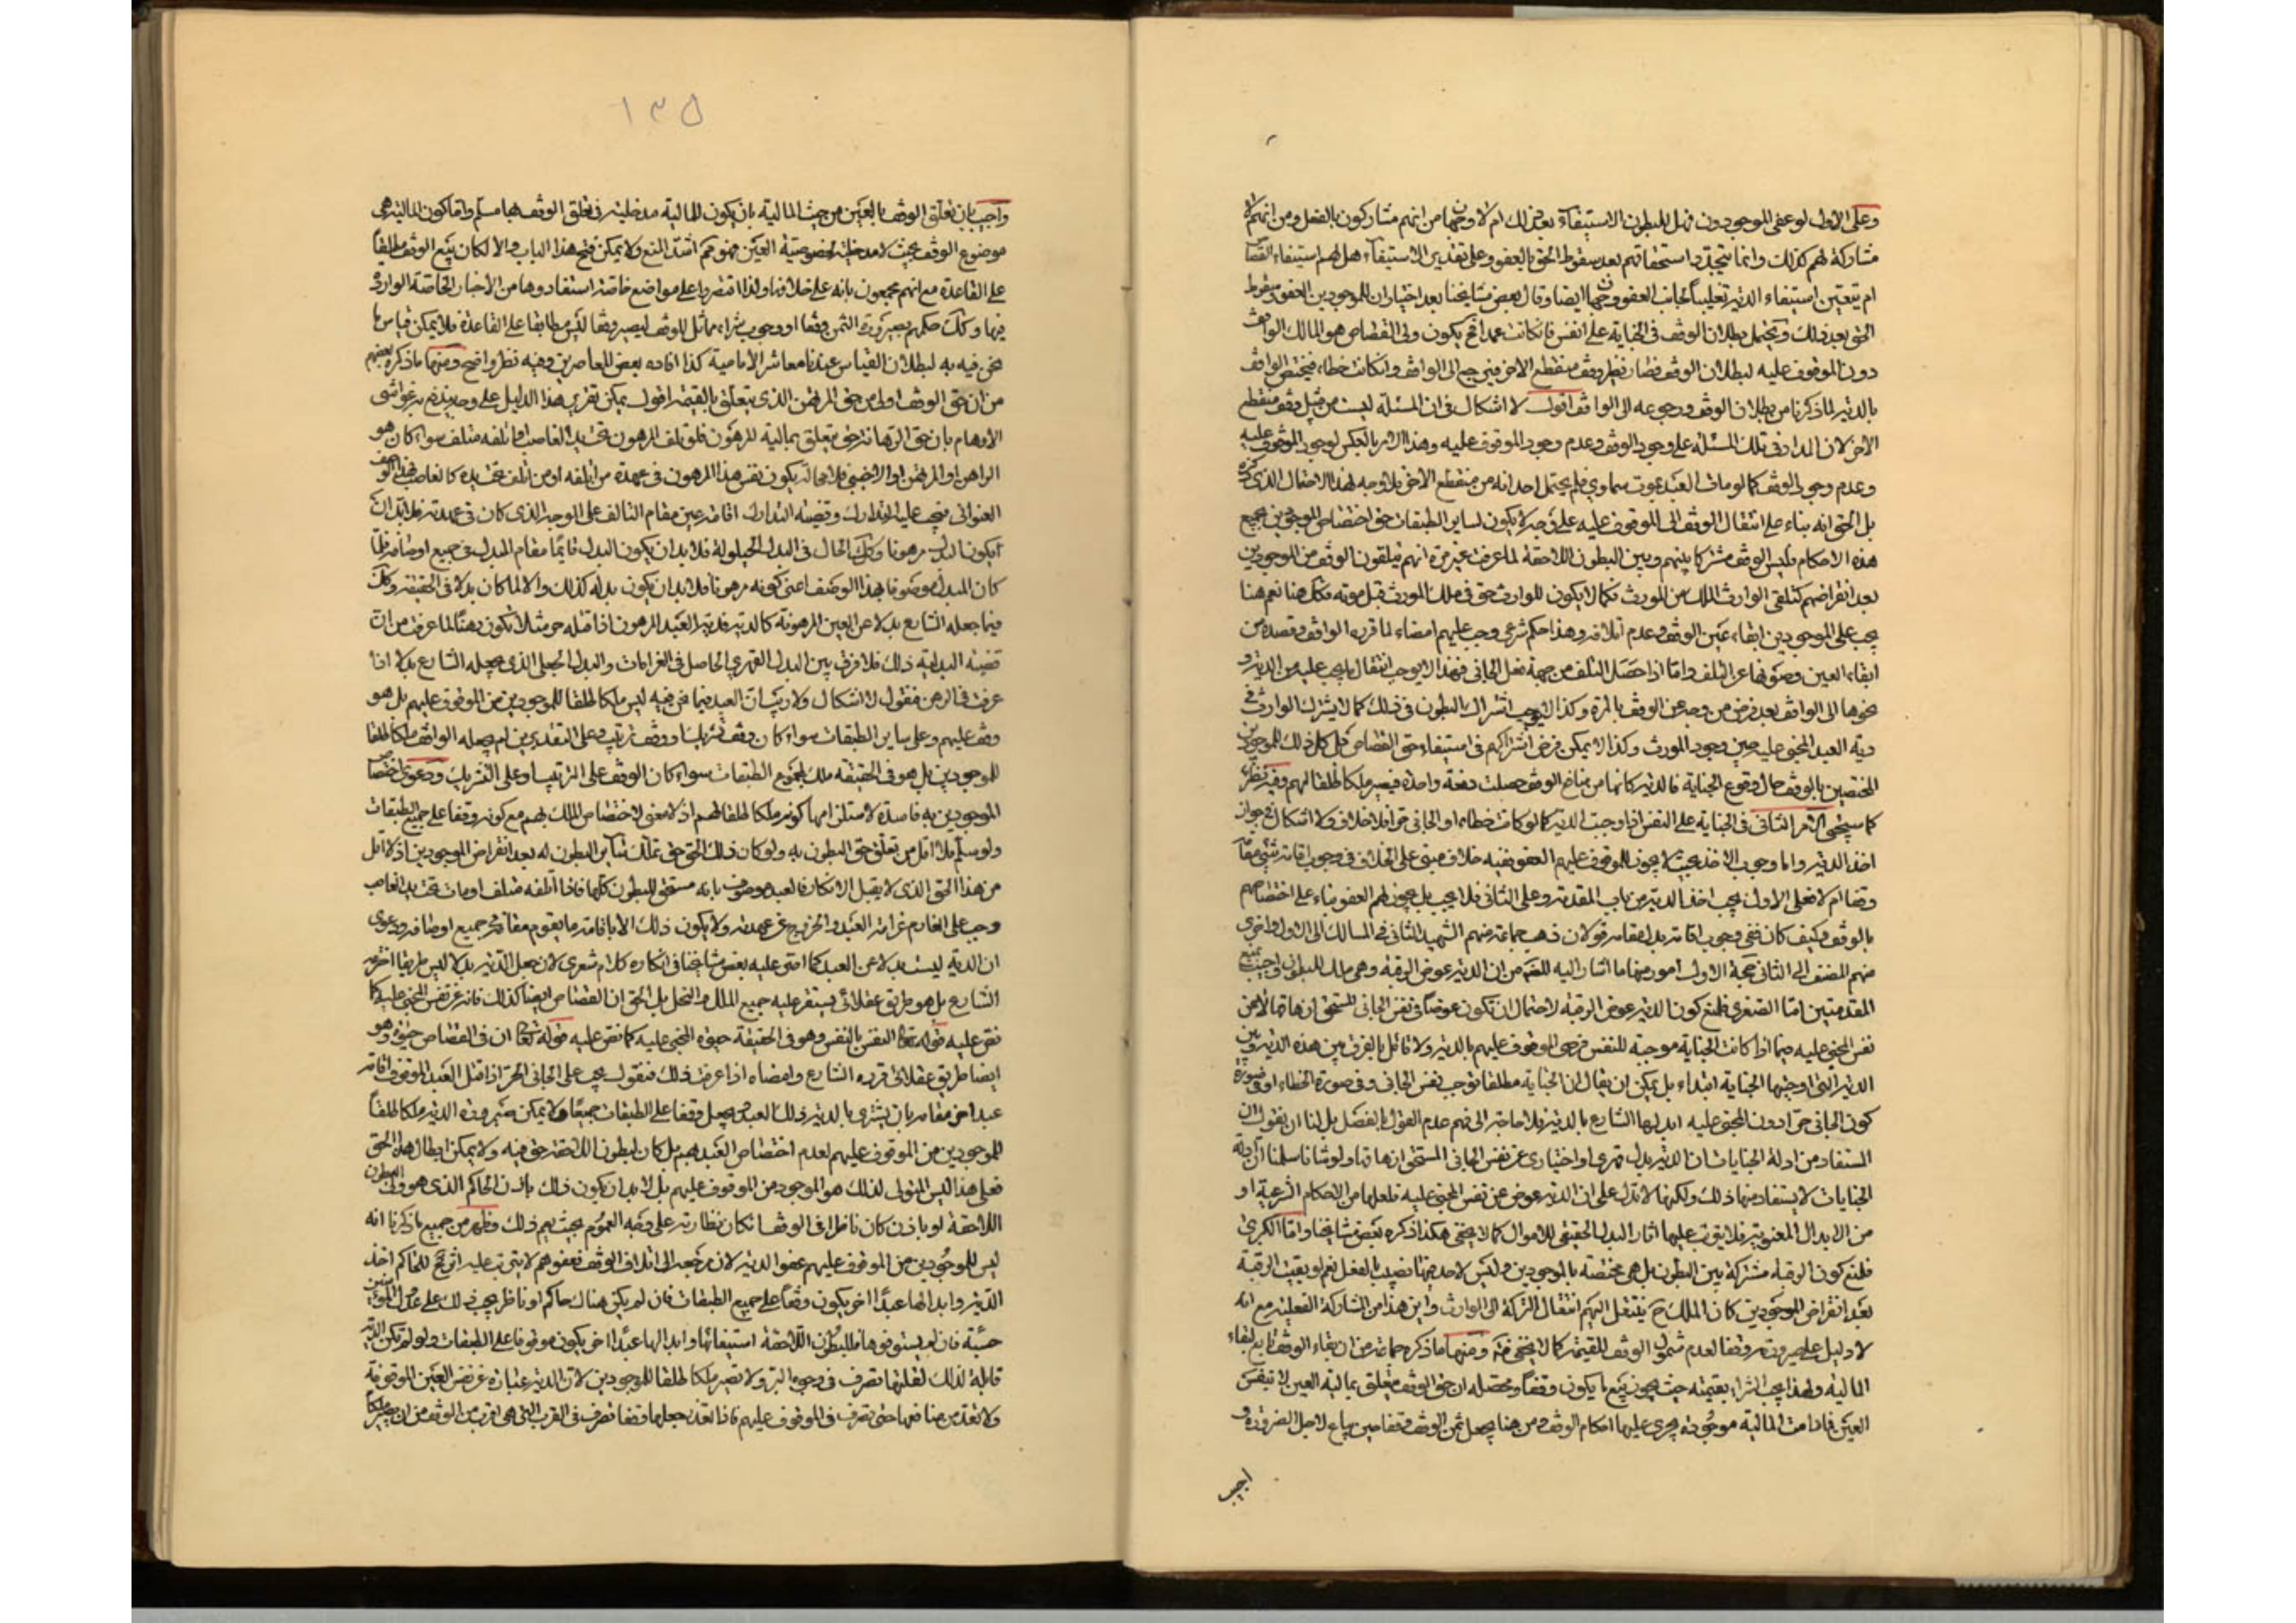 وعلى الاول لو عفى الموجودون فهل للبطون الاستيفاء بعد ذلك ام لا وجهان من انهم مشاركون بالفعل ومن انهم لا
مشاركة لهم كذلك وانما يتجدد استحقاقهم بعد سقوط الحق بالعفو وعلى تقدير الاستيفاء هل لهم استيفاء القصاص
ام يتعين استيفاء الدية تغليباً لجانب العفو وجهان ايضا وقال بعض مشايخنا بعد اختيار ان للموجودين العفو وسقوط
الحق بعد ذلك ويحتمل بطلان الوقف في الجناية على النفس فان كانت عمدا فح يكون ولي القصاص هو المالك الواقف
دون الموقوف عليه لبطلان الوقف فصار نظير وقف منقطع الاخر فيرجع الى الواقف وان كانت خطاء فيختص الواقف
بالدية لما ذكرنا من بطلان الوقف ورجوعه الى الواقف اقول لا اشكال في ان المسئلة ليست من قبيل وقف منقطع
الاخر لان المدار في تلك المسئلة على وجود الوقف وعدم وجود الموقوف عليه وهنا الامر بالعكس لوجود الموقوف عليه
وعدم وجود الوقف كما لو مات العبد بموت سماوي فلم يحتمل احد انه من منقطع الاخر فلا وجه لهذا الاحتمال الذي ذكره
بل الحق انه بناء على انتقال الوقف الى الموقوف عليه على وجه لا يكون لساير الطبقات حق اختصاص الموجودين بجميع
هذه الاحكام فليس الوقف مشتركا بينهم وبين البطون اللاحقة لما عرفت غير مرة انهم يتلقون الوقف من الموجودين
بعد انقراضهم كتلقي الوارث الملك من المورث فكما لا يكون للوارث حق في ملك المورث قبل موته فكك هنا نعم هنا
يجب على الموجودين ابقاء عين الوقف وعدم اتلافه وهذا حكم شرعي وجب عليهم امضاء لما قرره الواقف وقصده من
ابقاء العين وصونها عن التلف واما اذا حصل التلف من جهة فعل الجاني فهذا لا يوجب انتقال ما يجب عليه من الدية و
نحوها الى الواقف بعد فرض من وجه عن الوقف بالمرة وكذا لا يوجب اشتراك البطون في ذلك كما لا يشترك الوارث في
دية العبد المجني عليه حين وجود المورث وكذا لا يمكن فرض اشتراكهم في استيفاء حق القصاص بل كل ذلك للموجودين
المختصين بالوقف حال وقوع الجناية فالدية كانها من منافع الوقف حصلت دفعة واحدة فيصير ملكا طلقا لهم وفيه نظر
كما سيجئ الامر الثاني في الجناية على النفس اذا وجبت الدية كما لو كانت خطاء او الجاني حرا فلا خلاف ولا اشكال في جواز
اخذ الدية واما وجوب الاخذ بحيث لا يجوز للموقوف عليهم العفو ففيه خلاف مبني على الخلاف في وجوب اقامة شئ مقامه
وقفا ام لا فعلى الاول يجب اخذ الدية من باب المقدمة وعلى الثاني فلا يجب بل يجوز لهم العفو بناء على اختصاصهم
بالوقف وكيف كان ففي وجوب اقامة بدله مقامه قولان ذهب جماعة منهم الشهيد الثاني في المسالك الى الاول واخرى
منهم المصنف الى الثاني حجة الاول امور منها ما اشار اليه المصنف من ان الدية عوض الرقبة وهي ملك للبطون واجيب بمنع
المقدمتين اما الصغرى فلمنع كون الدية عوض الرقبة لاحتمال ان تكون عوضا في نفس الجاني المستحق ازهاقها لا عن
نفس المجني عليه فيما اذا كانت الجناية موجبة للنفس فرضي الموقوف عليهم بالدية ولا قائل بالفرق بين هذه الدية وبين
الدية التي اوجبها الجناية ابتداء بل يمكن ان يقال ان الجناية مطلقا توجب نفس الجاني وفي صورة الخطاء او في صورة
كون الجاني حرا دون المجني عليه ابدلها الشارع بالدية فلا حاجة الى ضم عدم القول بالفصل بل لنا ان نقول ان
المستفاد من ادلة الجنايات ان الدية بدل قهري او اختياري عن نفس الجاني المستحق ازهاقها ولو شئنا سلمنا ان ادلة
الجنايات لا يستفاد منها ذلك ولكنها لا تدل على ان الدية عوض عن نفس المجني عليه فلعلها من الاحكام الشرعية او
من الابدال المعنوية فلا يترتب عليها اثار البدل الحقيقي للاموال كما لا يخفى هكذا ذكره بعض مشايخنا واما الكبرى
فلمنع كون الرقبة مشتركة بين البطون بل هي مختصة بالموجودين وليس لاحد منها نصيب بالفعل نعم لو بقيت الرقبة
بعد انقراض الموجودين كان الملك ح ينتقل اليهم انتقال التركة الى الوارث واين هذا من المشاركة الفعلية مع انه
لا دليل على صيرورته وقفا لعدم شمول الوقف للقيمة كما لا يخفى فتم ومنها ما ذكره جماعة من ان بقاء الوقف تابع لبقاء
المالية ولهذا يجب الشراء بقيمته حيث يجوز بيع ما يكون وقفاً ومحصله ان حق الوقف متعلق بمالية العين لا بنفس
العين فما دامت المالية موجودة يجري عليها احكام الوقف ومن هنا يجعل ثمن الوقف وقفا حين يباع لاجل الضرورة و
اجيب
١٣٥
واجيب بان تعلق الوقف بالعين من حيث المالية بان يكون للمالية مدخلية في تعلق الوقف بها مسلم واما كون المالية هي
موضوع الوقف بحيث لا مدخلية لخصوصية العين فهو مم اشد المنع ولا يمكن فتح هذا الباب والا لكان بيع الوقف مطلقاً
على القاعدة مع انهم مجمعون بانه على خلافها ولذا اقتصروا على مواضع خاصة استفادوها من الاخبار الخاصة الواردة
فيها وكك حكمهم بصيرورة الثمن وقفا او وجوب شراء مماثل للوقف ليصير وقفا ليس مطابقا على القاعدة فلا يمكن قياس ما
نحن فيه به لبطلان القياس عندنا معاشر الامامية كذا افاده بعض المعاصرين وفيه نظر واضح ومنها ما ذكره بعضهم
من ان حق الوقف اولى من حق الرهن الذي يتعلق بالقيمة اقول يمكن تقرير هذا الدليل على وجه يندفع به غواشي
الاوهام بان حق الرهانة حق يتعلق بمالية المرهون فلو تلف المرهون تحت يد الغاصب او اتلفه متلف سواء كان هو
الراهن او المرتهن او الاجنبي فلا محالة يكون نفس هذا المرهون في عهدة من اتلفه او من تلف تحت يده كالغاصب بهذا الوصف
العنواني فيجب عليه التدارك وقضية التدارك اقامة عين مقام التالف على الوجه الذي كان في عهدته فلابد ان
يكون البدل مرهونا وكك الحال في البدل الحيلولة فلا بد ان يكون البدل قائمًا مقام المبدل في جميع اوصافه فلما
كان المبدل موصوفا بهذا الوصف اعني كونه مرهونا فلا بد ان يكون بدله كذلك والا لما كان بدلا في الحقيقة وكك
فيما جعله الشارع بدلا عن العين المرهونة كالدية فدية العبد المرهون اذا قتله حر مثلا تكون رهناً لما عرفت من ان
قضية البدلية ذلك فلا فرق بين البدل القهري الحاصل في الغرامات والبدل الجعلي الذي يجعله الشارع بدلا اذا
عرفت في الرهن فنقول لا اشكال ولا ريب ان العبد فيما نحن فيه ليس ملكا طلقا للموجودين من الموقوف عليهم بل هو
وقف عليهم وعلى ساير الطبقات سواء كان وقف تشريك او وقف ترتيب وعلى التقديرين لم يجعله الواقف ملكا طلقا
للموجودين بل هو في الحقيقة ملك لمجموع الطبقات سواء كان الوقف على الترتيب او على التشريك ودعوى اختصاص
الموجودين به فاسدة لاستلزامها كونه ملكا طلقا لهم اذ لا معنى لاختصاص الملك بهم مع كونه وقفا على جميع الطبقات
ولو سلم فلا اقل من تعلق حق البطون به ولو كان ذلك الحق حق تملك ساير البطون له بعد انقراض الموجودين اذ لا اقل
من هذا الحق الذي لا يقبل الانكار فالعبد موصوف بانه مستحق للبطون كلها فاذا اتلفه متلف او مات تحت يد الغاصب
وجب على الغارم غرامة العبد والخروج عن عهدته ولا يكون ذلك الا باقامة ما يقوم مقامه في جميع اوصافه ودعوى
ان الدية ليست بدلا عن العبد كما اصر عليه بعض مشايخنا في انكاره كلام شعري لان جعل الدية بدلا ليس طريقا اخترعه
الشارع بل هو طريق عقلائي يستقر عليه جميع الملل والنحل بل الحق ان القصاص ايضا كذلك فانه عن نفس المجني عليه كما
نص عليه قوله تعالى النفس بالنفس وهو في الحقيقة حيوة المجني عليه كما نص عليه قوله تعالى ان في القصاص حيوة وهو
ايضا طريق عقلائي قرره الشارع وامضاه اذا عرفت ذلك فنقول يجب على الجاني الحر اذا قتل العبد الموقوف اقامة
عبد اخر مقامه بان يشترى بالدية ذلك العبد ويجعل وقفا على الطبقات جميعًا ولا يمكن صيرورة الدية ملكا طلقاً
للموجودين من الموقوف عليهم لعدم اختصاص العبد بهم بل كان لبطون اللاحقة حق فيه ولا يمكن ابطال هذا الحق
فعلى هذا ليس المتولي لذلك هو الموجود من الموقوف عليهم بل لا بد ان يكون ذلك باذن الحاكم الذي هو ولي البطون
اللاحقة او باذن كان ناظرا في الوقف ان كان نظارته على وجه العموم بحيث يعم ذلك وظهر من جميع ما ذكرنا انه
ليس للموجودين من الموقوف عليهم عفو الدية لان مرجعه الى اتلاف الوقف فعفوهم لا يترتب عليه اثر فح للحاكم اخذ
الدية وابدالها عبدًا اخر يكون وقفاً على جميع الطبقات فان لم يكن هناك حاكم او ناظر يجب ذلك على عدول المؤمنين
حسبة فان لم يستوفوها فللبطون اللاحقة استيفائها وابدالها عبدًا اخر يكون موقوفا على الطبقات ولو لم تكن الدية
قابلة لذلك لقلتها تصرف في وجوه البر ولا تصير ملكا طلقا للموجودين لان الدية عبارة عن نفس العين الموقوفة
ولا تعد من منافعها حتى تصرف في الموقوف عليهم فاذا تعذر جعلها وقفا تصرف في القرب التي هي اقرب من الوقف من ان يصير ملكاً